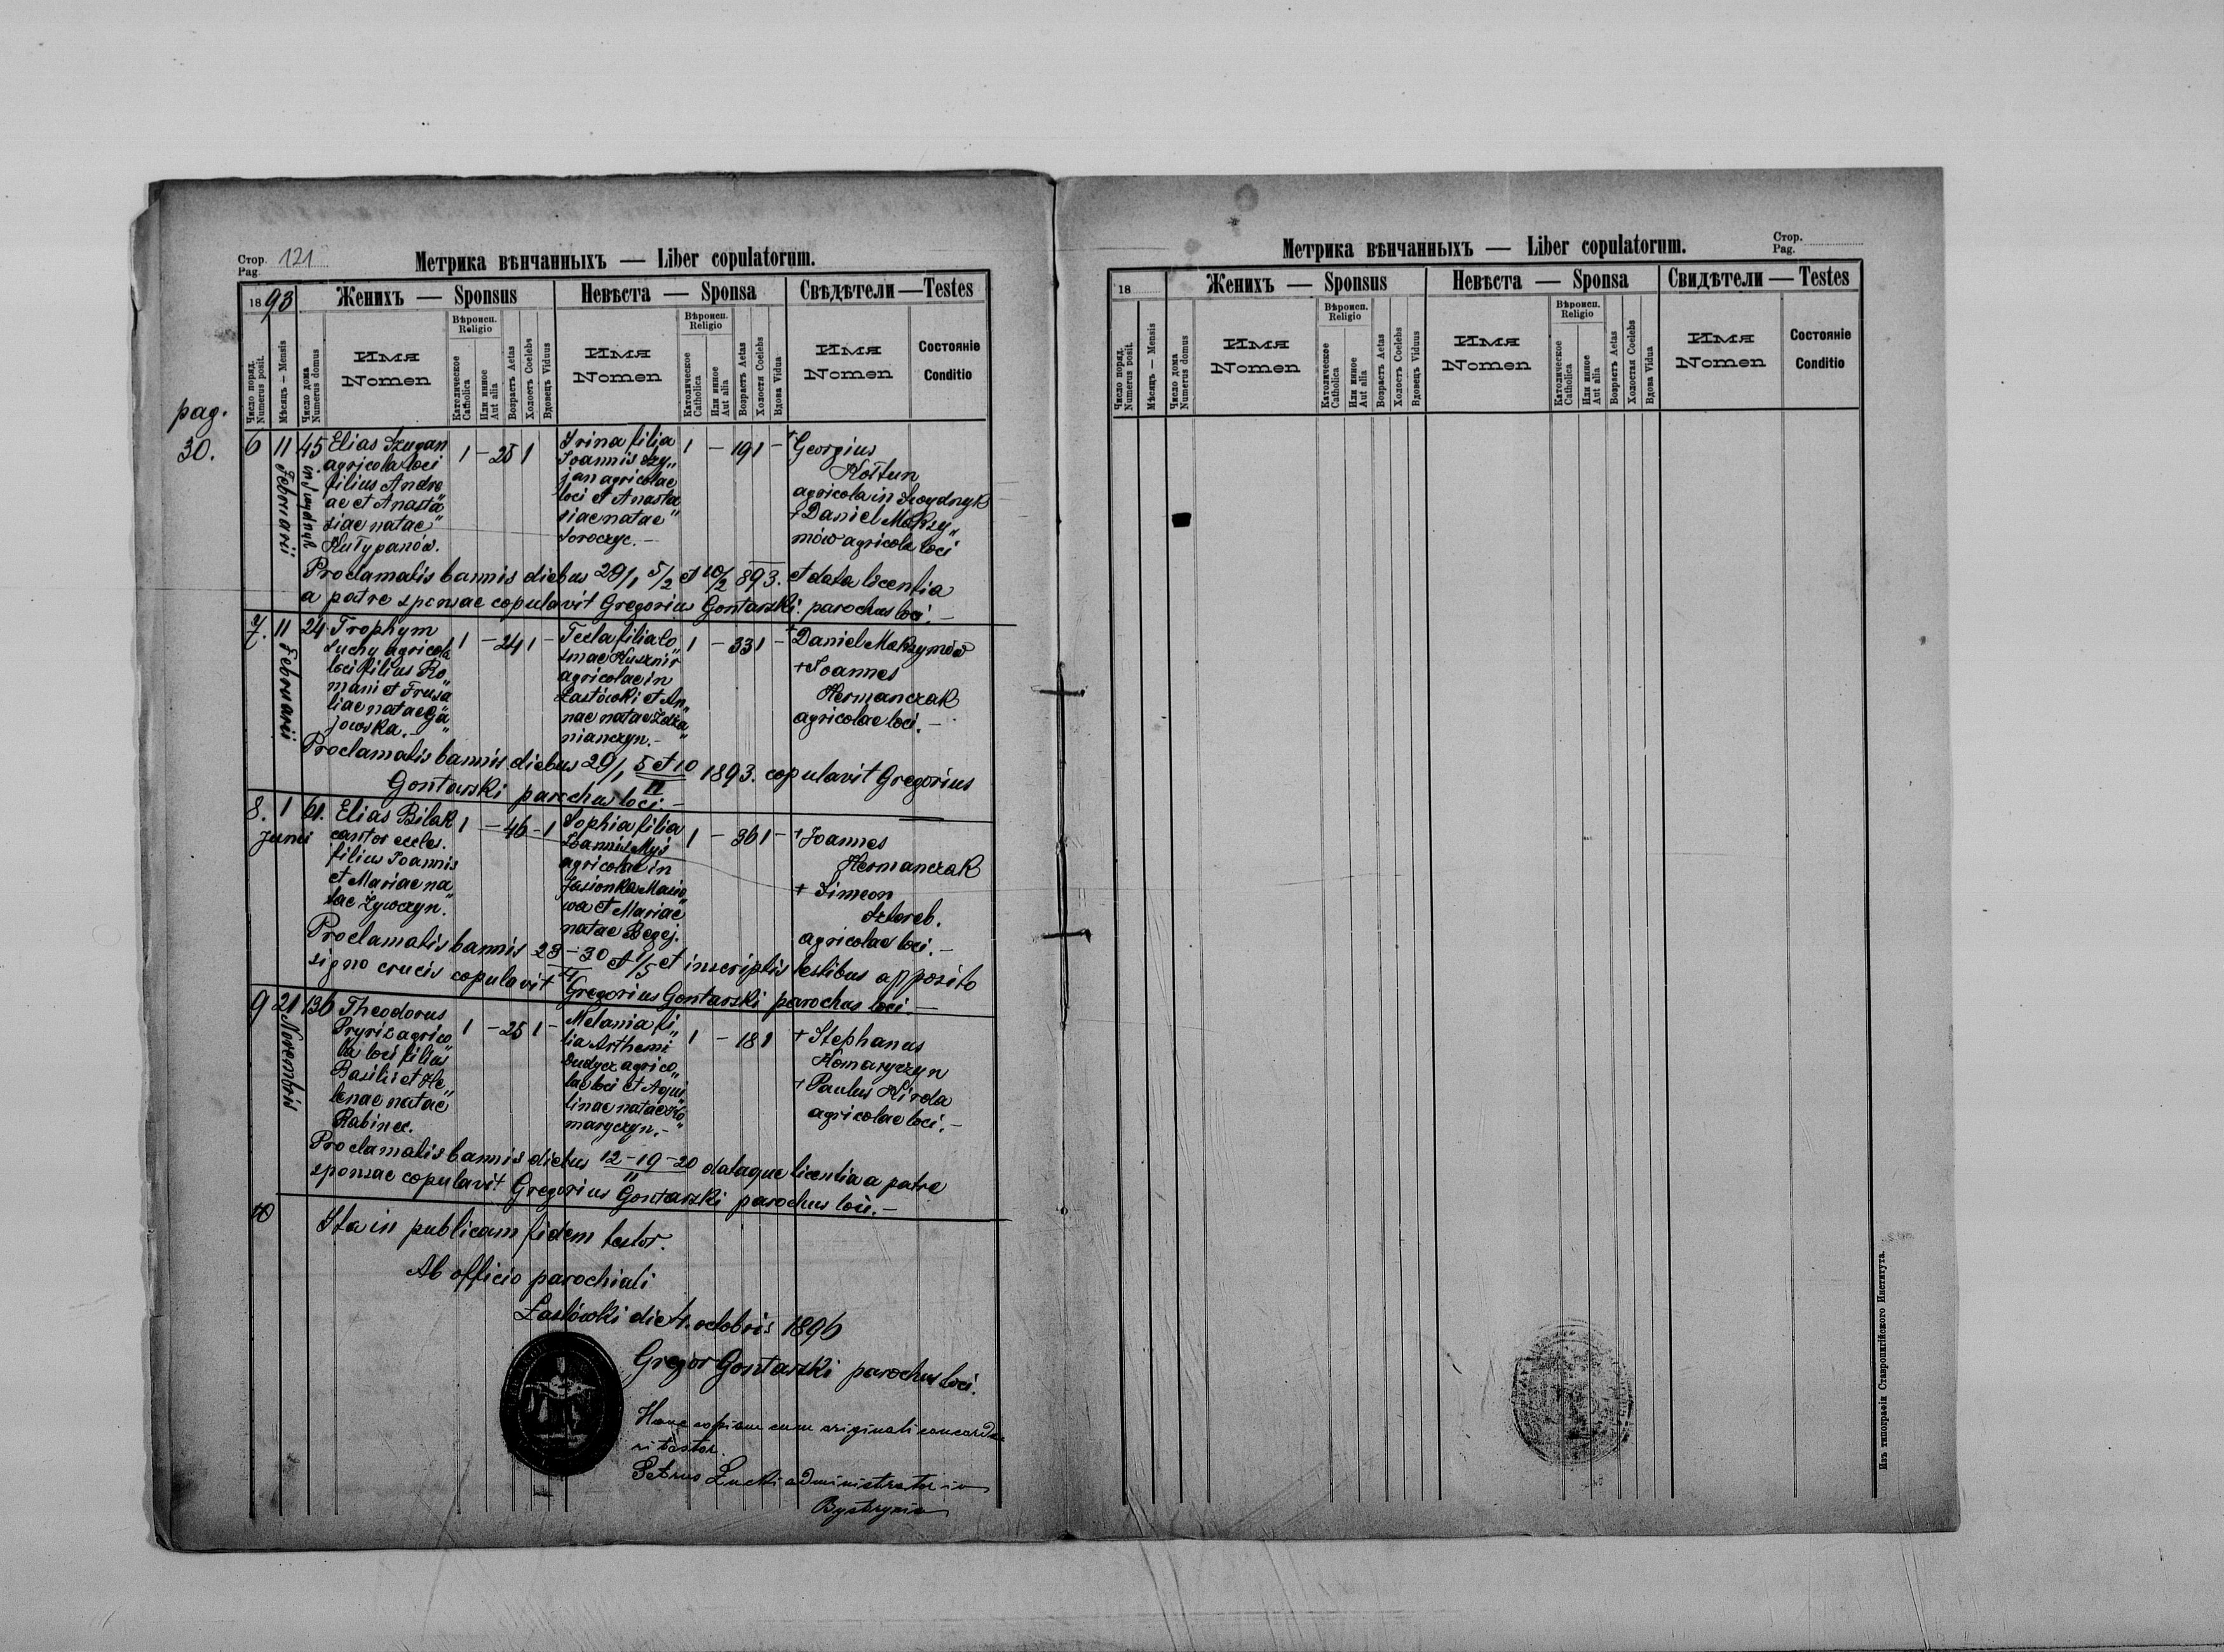 Стор. Pag. 121
Метрика вѣнчанныхъ — Liber copulatorum.
1893
Женихъ — Sponsus
Невѣста — Sponsa
Свѣдѣтели — Testes
Число поряд. Numerus posit.
Мѣсяцъ — Mensis
Число дома Numerus domus
Имя Nomen
Вѣроисп. Religio
Католическое Catholica
Или инное Aut alia
Возрастъ Aetas
Холостъ Coelebs
Вдовецъ Viduus
Имя Nomen
Вѣроисп. Religio
Католическое Catholica
Или инное Aut alia
Возрастъ Aetas
Холостя Coelebs
Вдова Vidua
Имя Nomen
Состояніе Conditio
pag.
30.
6 11 Februarii 45
Elias
agricola loci
filius Andre
ae et Anasta"
siae natae
Kułypanów.
1 — 25 1
Irina filia
Joannis Szy"
jan agricolae
loci et Anasta
siae natae"
Soroczyc. —
1 — 19 1 —
+ Georgius
Kołtun
agricola in
+ Daniel Makszy"
mów agricola loci
Proclamatis bannis diebus 29/1, 5/2 et 10/2 893. et data licentia
a patre sponsae copulavit Gregorius Gontarski parochus loci. —
7. 11 Februarii 24
Trophym
Suchy agricola
loci filius Ro"
mani et Frusa
liae natae Ga"
jowska. —
1 — 24 1 —
Tecla filia Co"
smae Kusznir
agricolae in
Łastówki et An"
nae natae
nianczyn. —
1 — 33 1 —
+ Daniel Makszymów
+ Joannes
Hermanczak
agricolae loci. —
Proclamatis bannis diebus 29/1, 5 et 10/II 1893. copulavit Gregorius
Gontarski parochus loci. —
8. 1 Junii 61.
Elias Bilak
cantor eccles.
filius Joannis
et Mariae na
tae Zywczyn.
1 — 46 — 1
Sophia filia
Joannis Myś
agricolae in
Jasionka Masio
wa et Mariae
natae Begej.
1 — 36 1 —
+ Joannes
Hermanczak
+ Simeon
agricolae loci. —
Proclamatis bannis 23 — 30/4 et 1/5 et inscriptis testibus apposito
signo crucis copulavit Gregorius Gontarski parochus loci. —
9 21 Novembris 136
Theodorus
Pryriz agrico"
la loci filius
Basilii et He"
lenae natae
Rabinec.
1 — 25 1 —
Melania fi"
lia Arthemi
Dudycz agrico"
lae loci et Aqui"
linae natae Ko
maryczyn. —
1 — 18 1
+ Stephanus
Komaryczyn
+ Paulus Kirda
agricolae loci. —
Proclamatis bannis diebus 12 — 19 — 20/11 dataque licentia a patre
sponsae copulavit Gregorius Gontarski parochus loci. —
10
Ita in publicam fidem testor.
Ab officio parochiali
Łastówki die 4. octobris 1896
Gregor Gontarski parochus loci.
Hanc copiam cum originali concorda
ri testor.
Petrus Łucki administrator in
Bystryca
Стор. Pag.
Метрика вѣнчанныхъ — Liber copulatorum.
18
Женихъ — Sponsus
Невѣста — Sponsa
Свидѣтели — Testes
Число поряд. Numerus posit.
Мѣсяцъ — Mensis
Число дома Numerus domus
Имя Nomen
Вѣроисп. Religio
Католическое Catholica
Или инное Aut alia
Возрастъ Aetas
Холостъ Coelebs
Вдовецъ Viduus
Имя Nomen
Вѣроисп. Religio
Католическое Catholica
Или инное Aut alia
Возрастъ Aetas
Холостая Coelebs
Вдова Vidua
Имя Nomen
Состояніе Conditio
Изъ типографіи Ставропигійского Института.